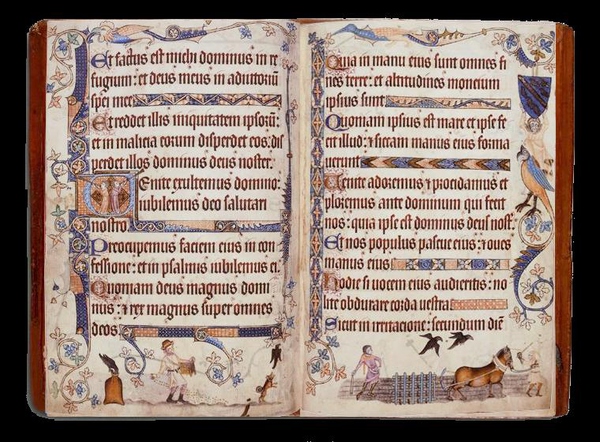 Et factus est michi dominus in re
fugium: et deus meus in adiutoriū
spei mee
Et reddet illis iniquitatem ipsorū:
et in malicia eorum disperdet eos: dis
perdet illos dominus deus noster.
Uenite exultemus domino:
iubilemus deo salutari
nostro.
Preocupemus faciem eius in con
fessione: et in psalmis iubilemus ei.
Quoniam deus magnus domi
nus: et rex magnus super omnes
deos.
Quia in manu eius sunt omnes fi
nes terre: et altitudines moncium
ipsius sunt
Quoniam ipsius est mare et ipse fe
cit illud: et siccam manus eius forma
uerunt
Uenite adoremus et procidamus et
ploremus ante dominum qui fecit
nos: quia ipse est dominus deus nost̄.
Et nos populus pascue eius: et oues
manus eius
Hodie si uocem eius audieritis: no
lite obdurare corda uestra
Sicut in irritacione: secundum diē